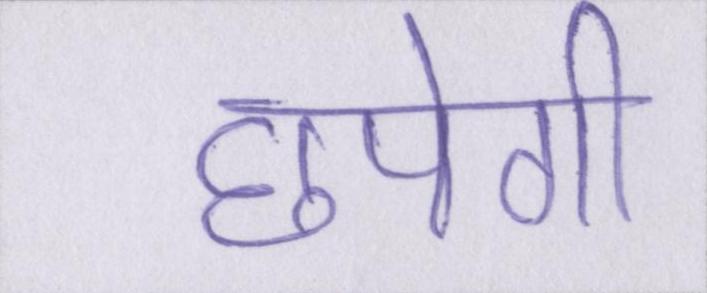 छपेगी